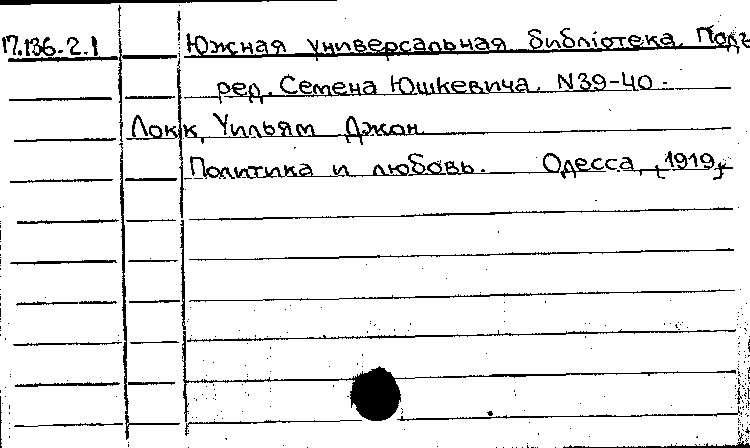 17.136-2.1 Южная универсальная библіотека. Подъ
ред. Семена Юшкевича. N39-40.
Локк, Уильям Джон
Политика и любовь. Одесса, [1919]